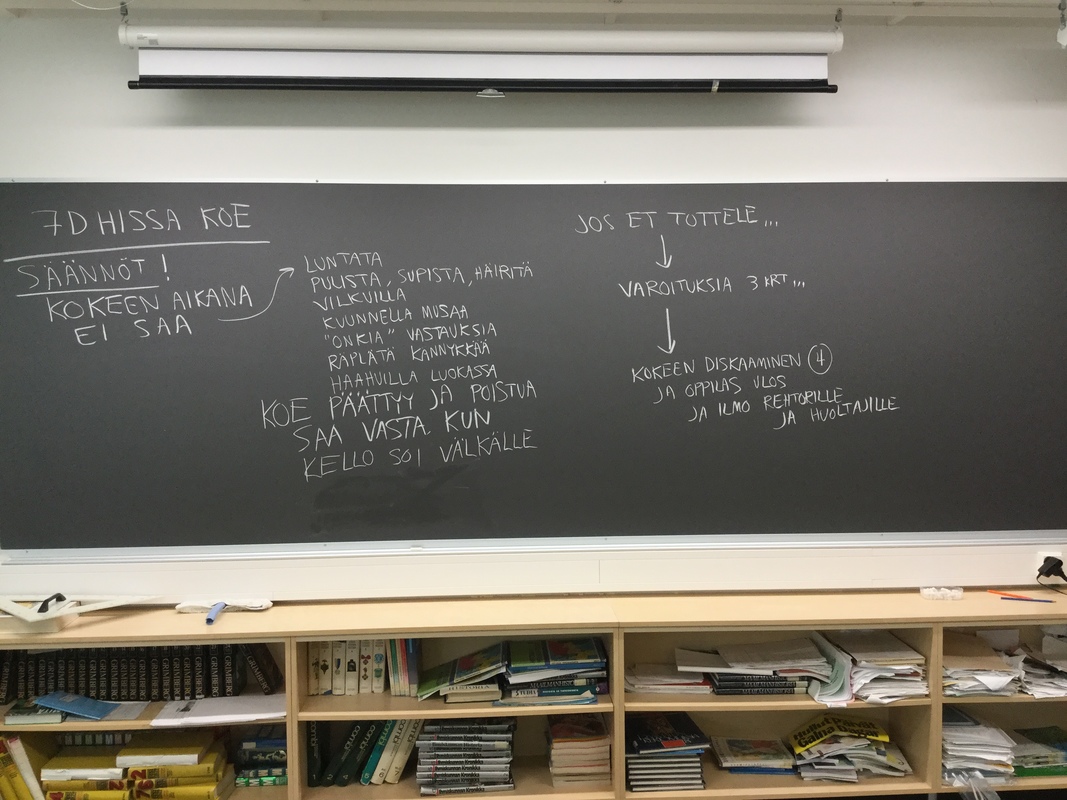 7D HISSA KOE
SÄÄNNÖT !
KOKEEN AIKANA
EI SAA
LUNTATA
PULISTA, SUPISTA, HÄIRITÄ
VILKUILLA
KUUNNELLA MUSAA
"ONKIA" VASTAUKSIA
RÄPLÄTÄ KÄNNYKKÄÄ
HAAHUILLA LUOKASSA
KOE PÄÄTTYY JA POISTUA
SAA VASTA KUN
KELLO SOI VÄLKÄLLE
JOS ET TOTTELE,,,
VAROITUKSIA 3 KRT,,,
KOKEEN DISKAAMINEN 4
JA OPPILAS ULOS
JA ILMO REHTORILLE
JA HUOLTAJILLE
GRIMBERG
HISTORIA